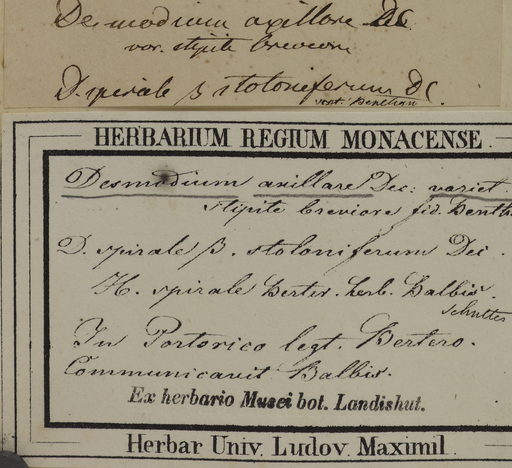 Desmodium axillare DC
var. stipite breviore
D. spirale β stoloniferum DC.
test. Bentham
HERBARIUM REGIUM MONACENSE.
Desmodium axillare Dec: variet.
stipite breviore fid. Benth
D. spirale β. stoloniferum Dec.
H. spirale Berter. herb. Balbis.
Schultes
In Portorico legt. Bertero.
Communicavit Balbis.
Ex herbario Musei bot. Landishut.
Herbar Univ. Ludov. Maximil.